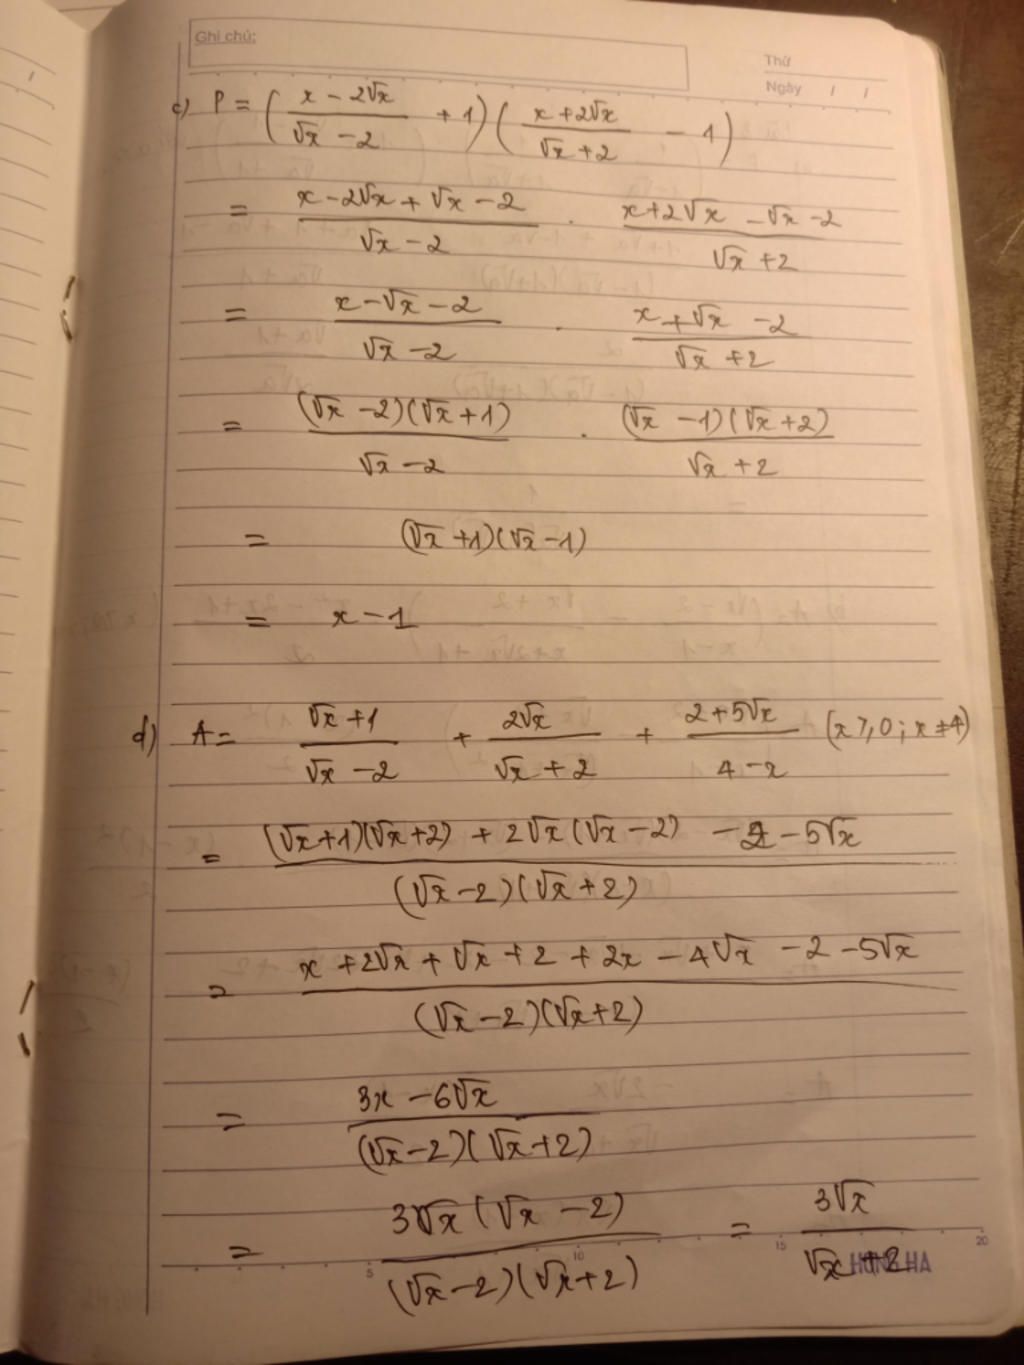 Ghi chú:
Thứ
Ngày / /
c) P = ( (x - 2√x)/(√x - 2) + 1 ) ( (x + 2√x)/(√x + 2) - 1 )
= (x - 2√x + √x - 2)/(√x - 2) . (x + 2√x - √x - 2)/(√x + 2)
= (x - √x - 2)/(√x - 2) . (x + √x - 2)/(√x + 2)
= ((√x - 2)(√x + 1))/(√x - 2) . ((√x - 1)(√x + 2))/(√x + 2)
= (√x + 1)(√x - 1)
= x - 1
d) A = (√x + 1)/(√x - 2) + (2√x)/(√x + 2) + (2 + 5√x)/(4 - x) (x ⩾ 0 ; x ≠ 4)
= ((√x + 1)(√x + 2) + 2√x(√x - 2) - 2 - 5√x)/((√x - 2)(√x + 2))
= (x + 2√x + √x + 2 + 2x - 4√x - 2 - 5√x)/((√x - 2)(√x + 2))
= (3x - 6√x)/((√x - 2)(√x + 2))
= (3√x(√x - 2))/((√x - 2)(√x + 2)) = (3√x)/(√x + 2)
5 10 15 20
HONG HA